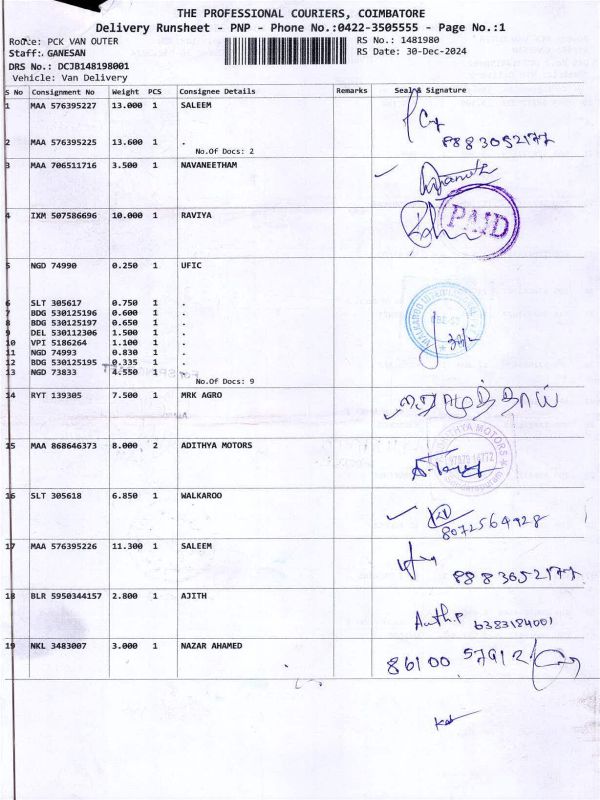 THE PROFESSIONAL COURIERS, COIMBATORE
Delivery Runsheet - PNP - Phone No.:0422-3505555 - Page No.:1
Route: PCK VAN OUTER
Staff: GANESAN
DRS No.: DCJB148198001
Vehicle: Van Delivery
RS No.: 1481980
RS Date: 30-Dec-2024
S No Consignment No Weight PCS Consignee Details Remarks Seal & Signature
1 MAA 576395227 13.000 1 SALEEM
8883052177
2 MAA 576395225 13.600 1 .
No.Of Docs: 2
3 MAA 706511716 3.500 1 NAVANEETHAM
4 IXM 507586696 10.000 1 RAVIYA PAID
5 NGD 74990 0.250 1 UFIC
6 SLT 305617 0.750 1 .
7 BDG 530125196 0.600 1 .
8 BDG 530125197 0.650 1 .
9 DEL 530112306 1.500 1 .
10 VPI 5186264 1.100 1 .
11 NGD 74993 0.830 1 .
12 BDG 530125195 0.335 1 .
13 NGD 73833 4.550 1 .
No.Of Docs: 9
14 RYT 139305 7.500 1 MRK AGRO
15 MAA 868646373 8.000 2 ADITHYA MOTORS
ADITHYA MOTORS
16 SLT 305618 6.850 1 WALKAROO
8072564928
17 MAA 576395226 11.300 1 SALEEM
8883052177
18 BLR 5950344157 2.800 1 AJITH
6383184001
19 NKL 3483007 3.000 1 NAZAR AHAMED
86100 57912